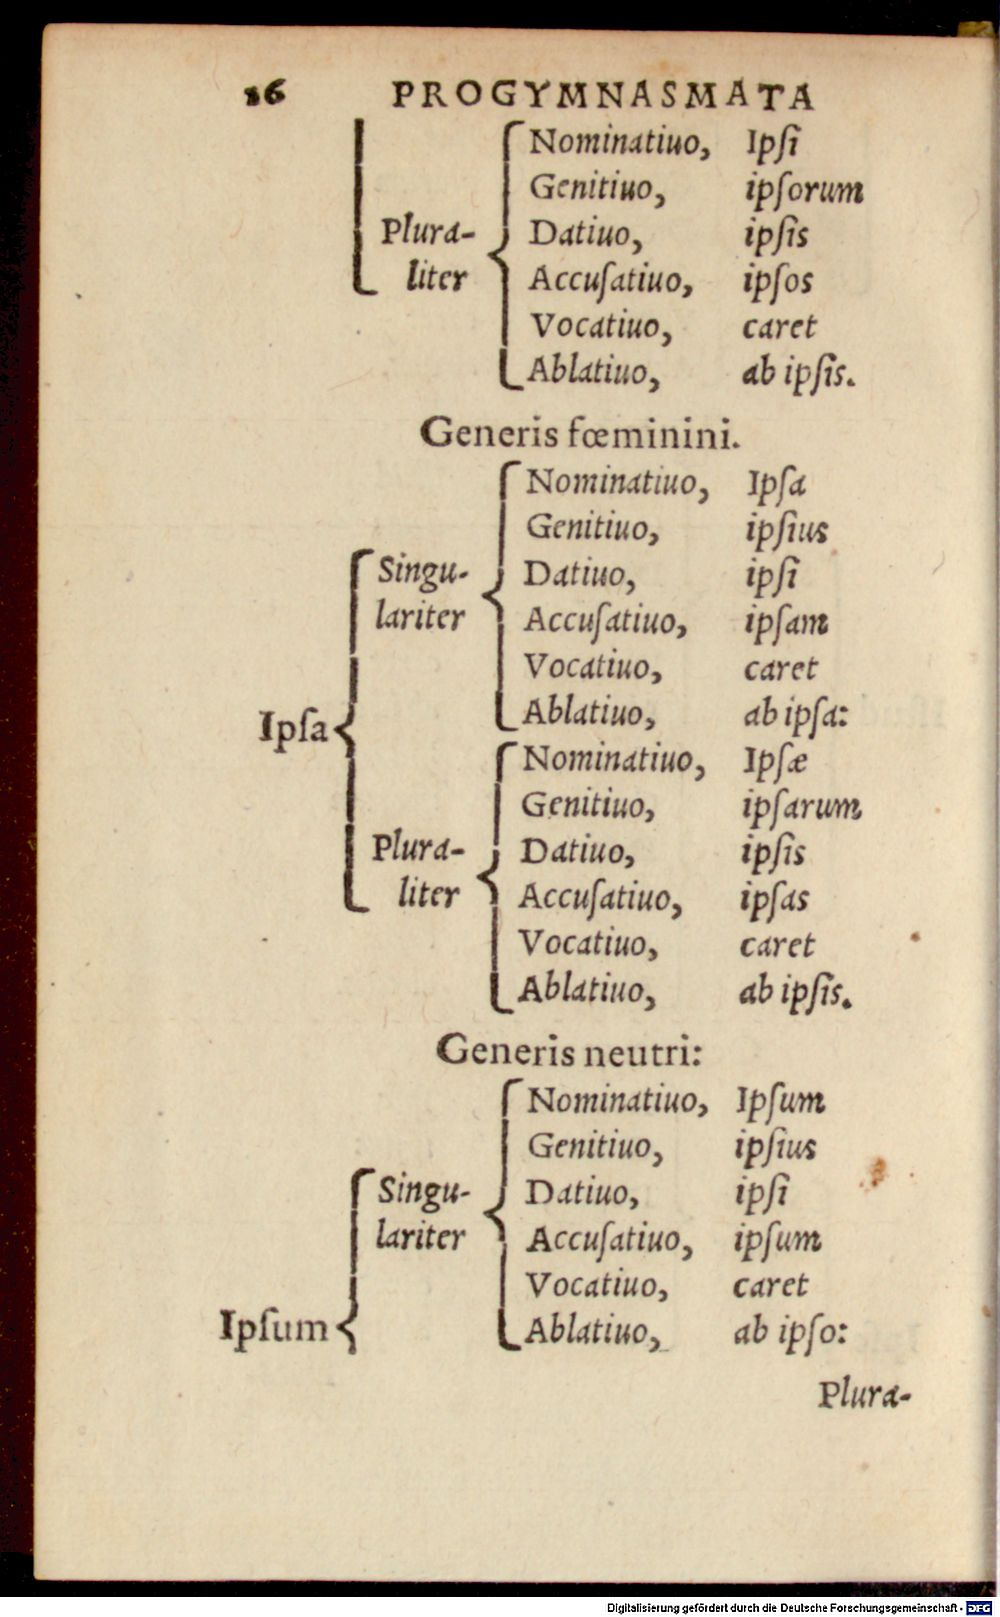 26 PROGYMNASMATA
Nominatiuo, Ipſi
Genitiuo, ipſorum
Plura- Datiuo, ipſis
liter Accuſatiuo, ipſos
Vocatiuo, caret
Ablatiuo, ab ipſis.
Generis fœminini.
Nominatiuo, Ipſa
Genitiuo, ipſius
Singu- Datiuo, ipſi
lariter Accuſatiuo, ipſam
Vocatiuo, caret
Ablatiuo, ab ipſa:
Ipſa
Nominatiuo, Ipſæ
Genitiuo, ipſarum
Plura- Datiuo, ipſis
liter Accuſatiuo, ipſas
Vocatiuo, caret
Ablatiuo, ab ipſis.
Generis neutri:
Nominatiuo, Ipſum
Genitiuo, ipſius
Singu- Datiuo, ipſi
lariter Accuſatiuo, ipſum
Vocatiuo, caret
Ipſum Ablatiuo, ab ipſo:
Plura-
Digitalisierung gefördert durch die Deutsche Forschungsgemeinschaft - DFG